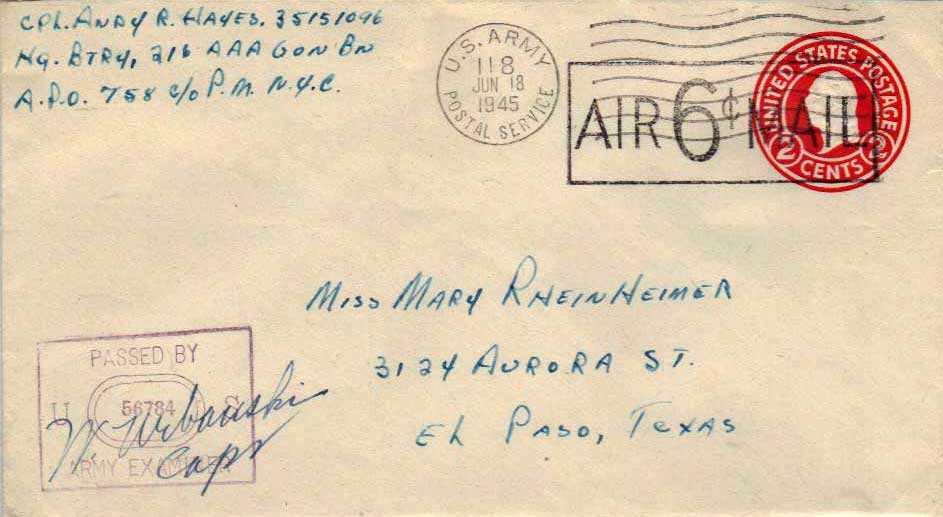 CPL. ANDY R. HAYES. 35151096
HQ. BTRY, 216 AAA GUN BN
A.P.O. 758 c/o P.M. N.Y.C.
U.S. ARMY
118
JUN 18
1945
POSTAL SERVICE
AIR 6¢ MAIL
UNITED STATES POSTAGE
2 CENTS 2
MISS MARY RHEINHEIMER
3124 AURORA ST.
EL PASO, TEXAS
PASSED BY
U 56784 S
ARMY EXAMINER
Capt